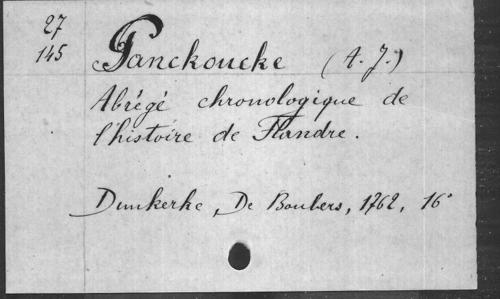 27
145
Panckoucke (A. J.)
Abrégé chronologique de
l'histoire de Flandre.
Dunkerke, De Boubers, 1762, 16°